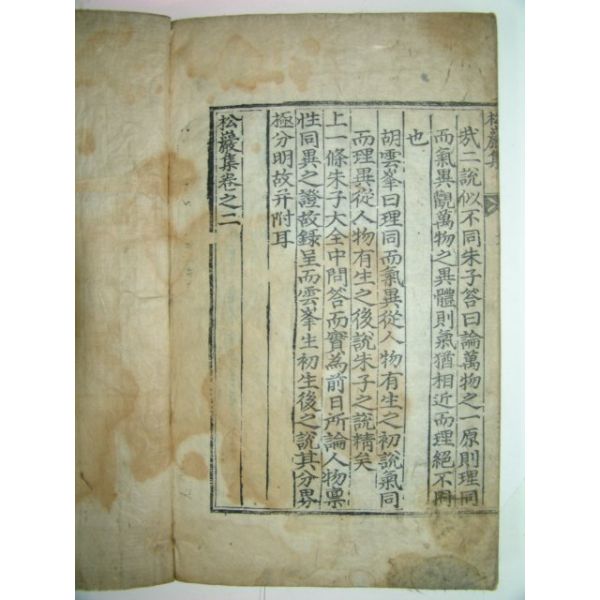 松巖集
哉二說似不同朱子答曰論萬物之一原則理同
而氣異觀萬物之異體則氣猶相近而理絕不同
也
胡雲峯曰理同而氣異從人物有生之初說氣同
而理異從人物有生之後說朱子之說精矣
上一條朱子大全中問答而實為前日所論人物稟
性同異之證故錄呈而雲峯生初生後之說其分界
極分明故并附耳
松巖集卷之二